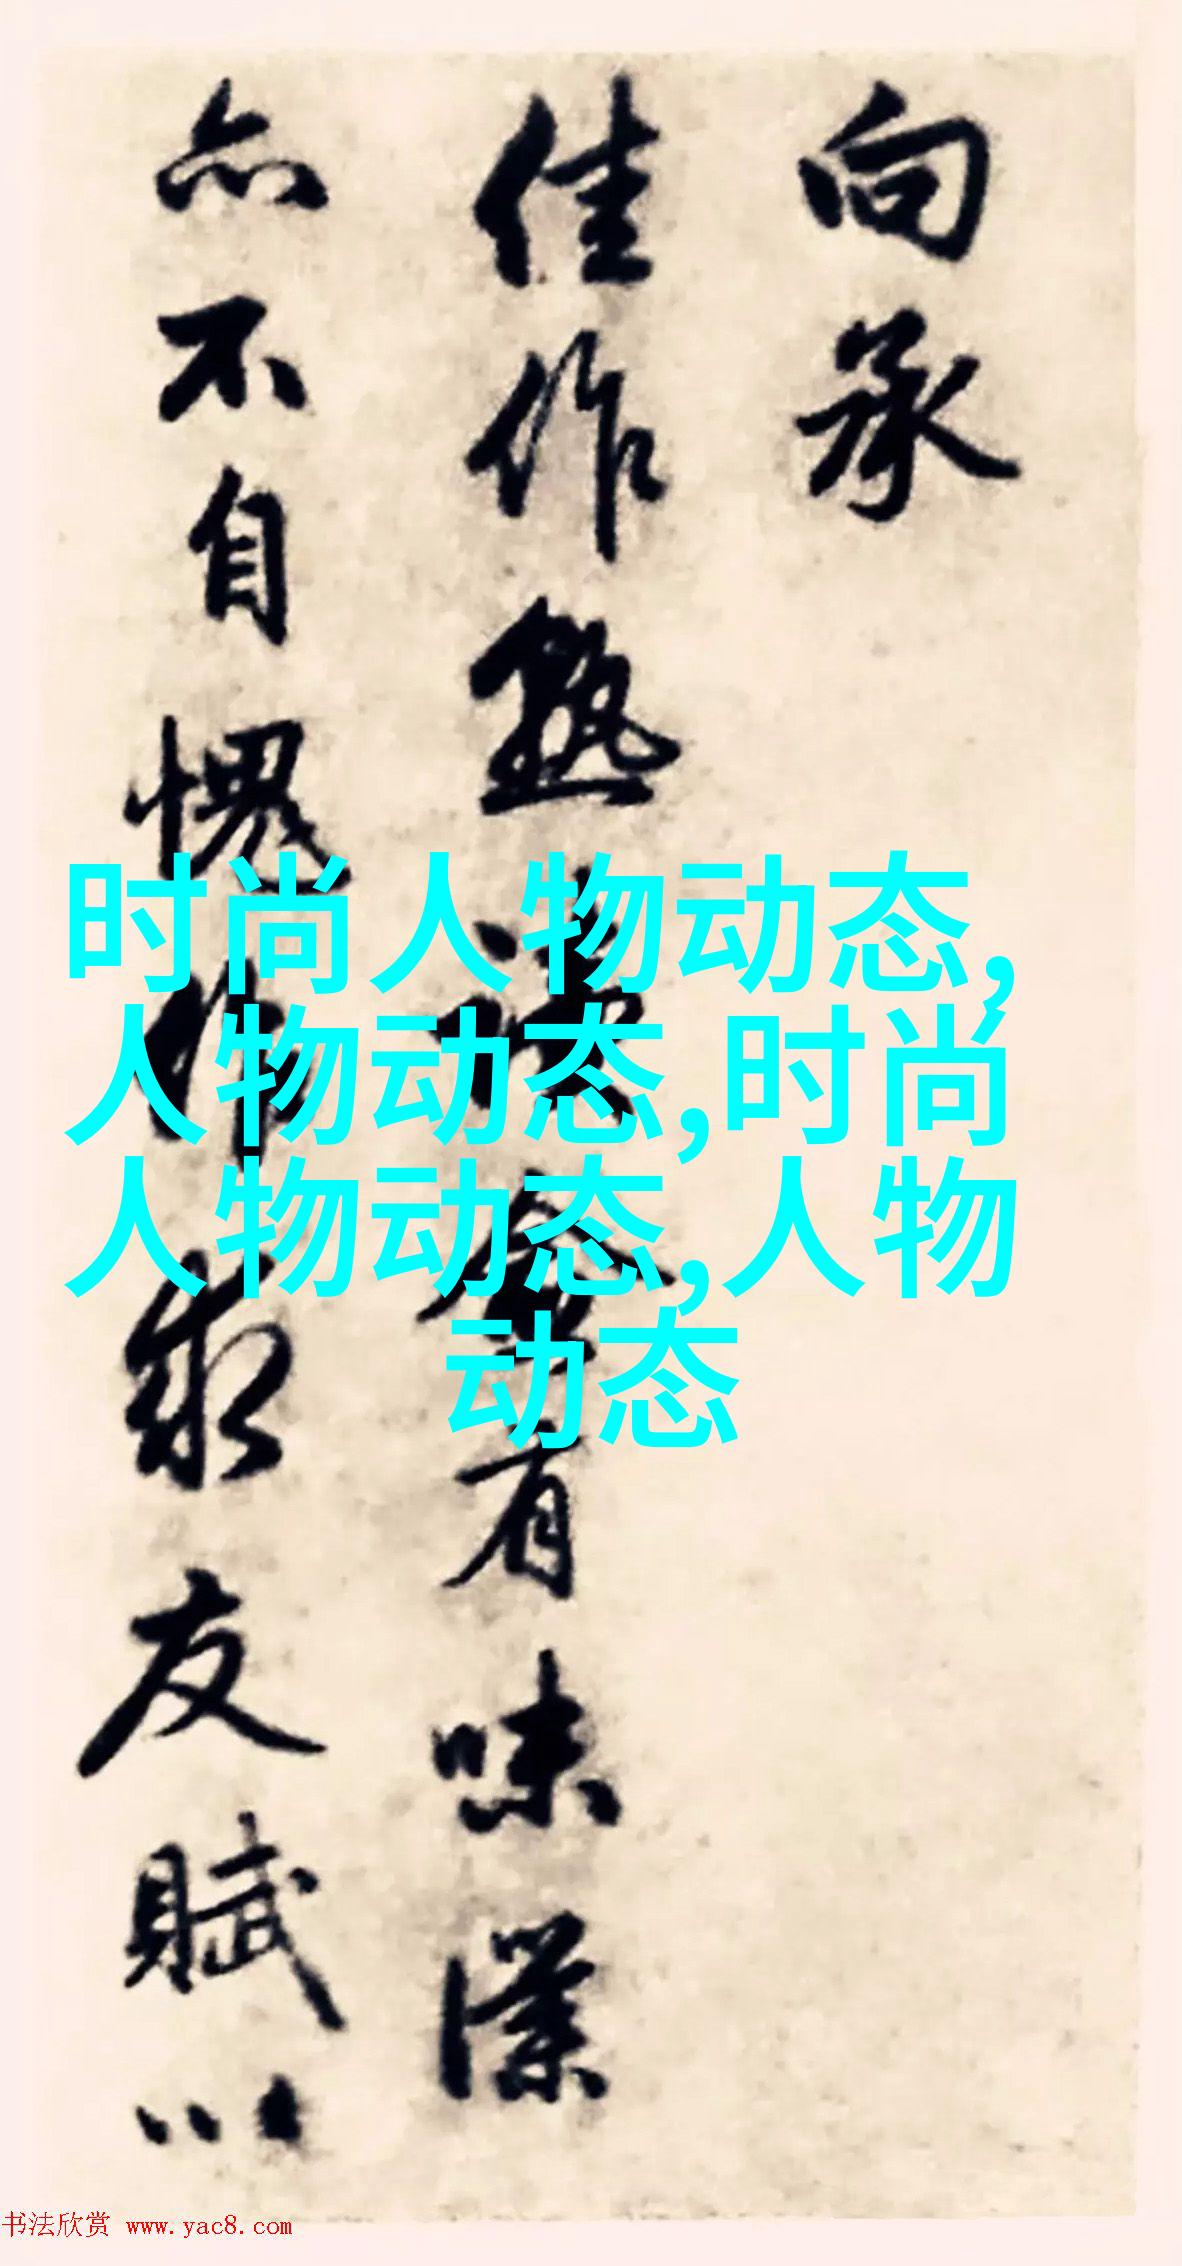 向承
佳作熟读益有味深
亦不自愧作求友赋以
时尚人物动态,
人物动态,时尚
人物动态,人物
动态
书法欣赏 www.yac8.com